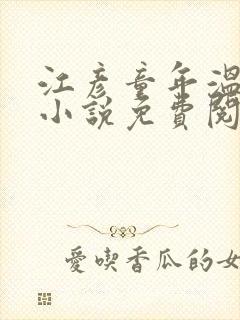 江彥童年溫
小說免費閱
愛喫香瓜的女